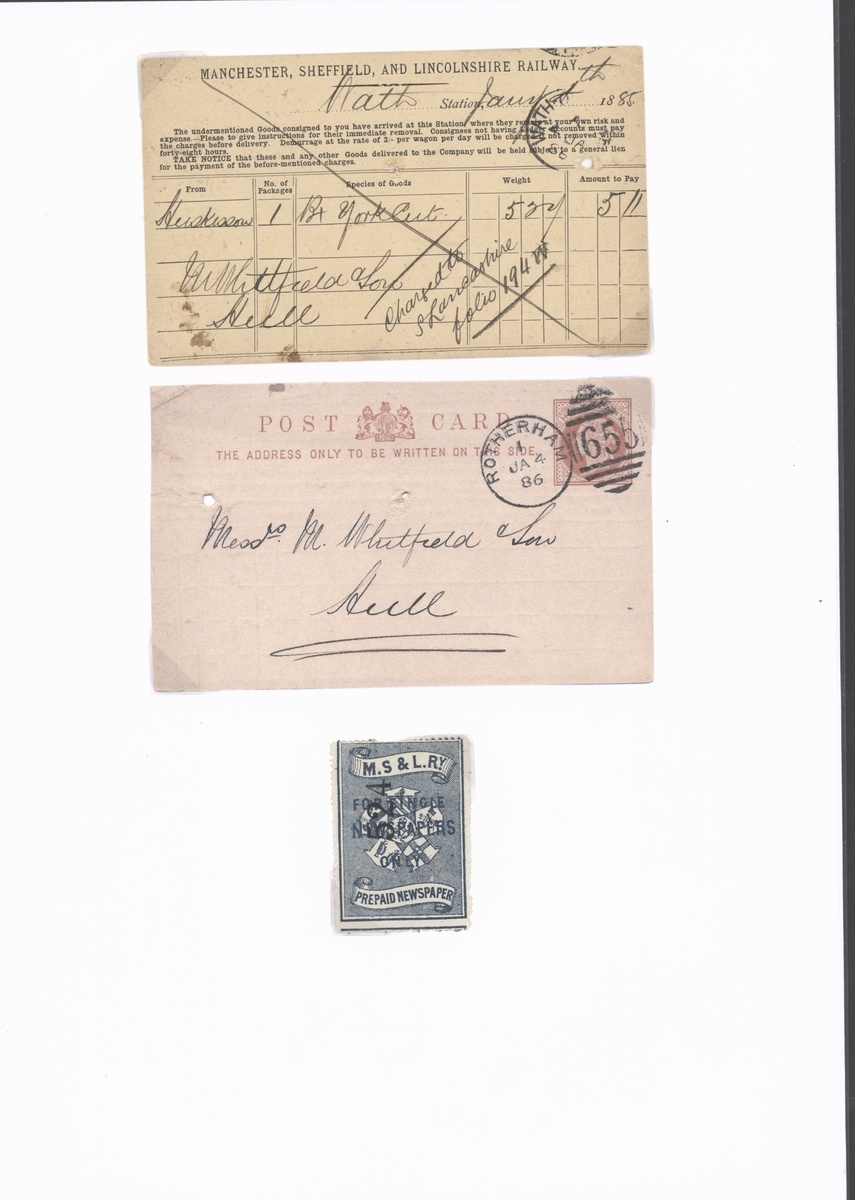 MANCHESTER, SHEFFIELD, AND LINCOLNSHIRE RAILWAY.
Wath Station, Jany 188
The undermentioned Goods consigned to you have arrived at this Station, where they remain at your own risk and
expense.—Please to give instructions for their immediate removal. Consignees not having Ledger Accounts must pay
the charges before delivery. Demurrage at the rate of 3/- per wagon per day will be charged if not removed within
forty-eight hours.
TAKE NOTICE that these and any other Goods delivered to the Company will be held subject to a general lien
for the payment of the before-mentioned charges.
From No. of Packages Species of Goods Weight Amount to Pay
Huskisson 1 Bx York Cut. 5 2 5 11
M Whitfield & Son
Hull
Charged to
S Lancashire
folio 194 W
POST CARD
THE ADDRESS ONLY TO BE WRITTEN ON THIS SIDE.
ROTHERHAM
1
JA 4
86
65
Messrs. M. Whitfield & Son
Hull
M.S & L.RY
524
FOR SINGLE
NEWSPAPERS
ONLY
PREPAID NEWSPAPER